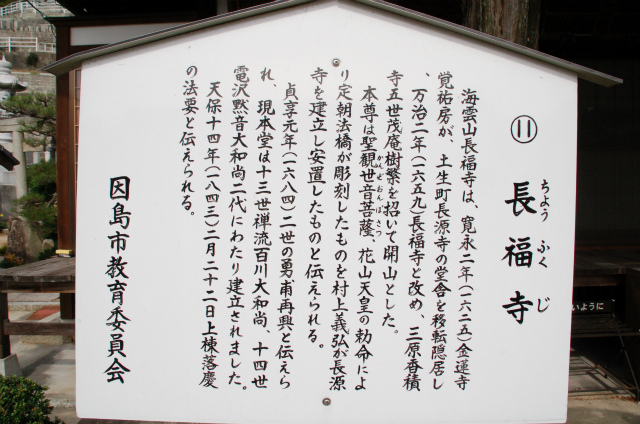 ⑪
長福寺
ちょう ふく じ
海雲山長福寺は、寛永二年(一六二五)金蓮寺
覚祐房が、土生町長源寺の堂舎を移転隠居し
、万治二年(一六五九)長福寺と改め、三原香積
寺五世茂庵樹繁を招いて開山とした。
本尊は聖観世音菩薩、花山天皇の勅命によ
かんぜおんぼさつ
り定朝法橋が彫刻したものを村上義弘が長源
寺を建立し安置したものと伝えられる。
貞享元年(一六八四)二世の勇甫再興と伝えら
れ、現本堂は十三世禅流百川大和尚、十四世
電沢黙音大和尚二代にわたり建立されました。
天保十四年(一八四三)二月二十二日上棟落慶
の法要と伝えられる。
因島市教育委員会
いように